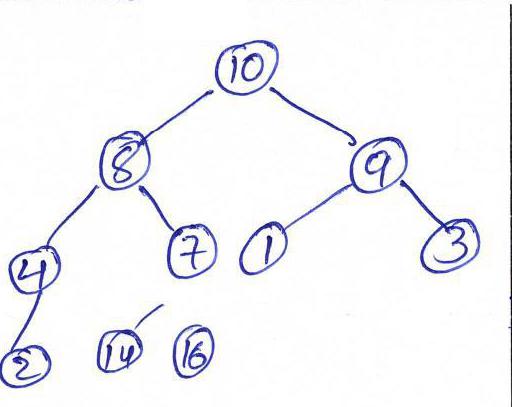 10
8 9
4 7 1 3
2 14 16